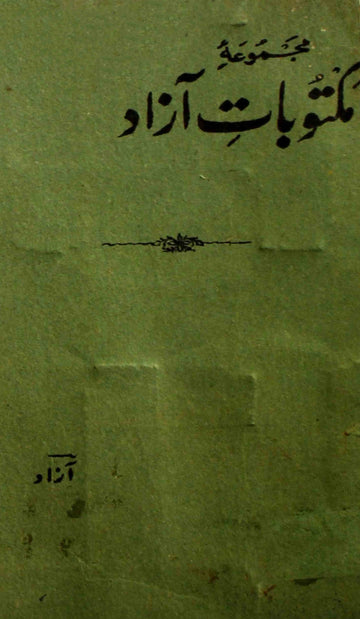 مجموعۂ
مکتوباتِ آزاد
آزاد